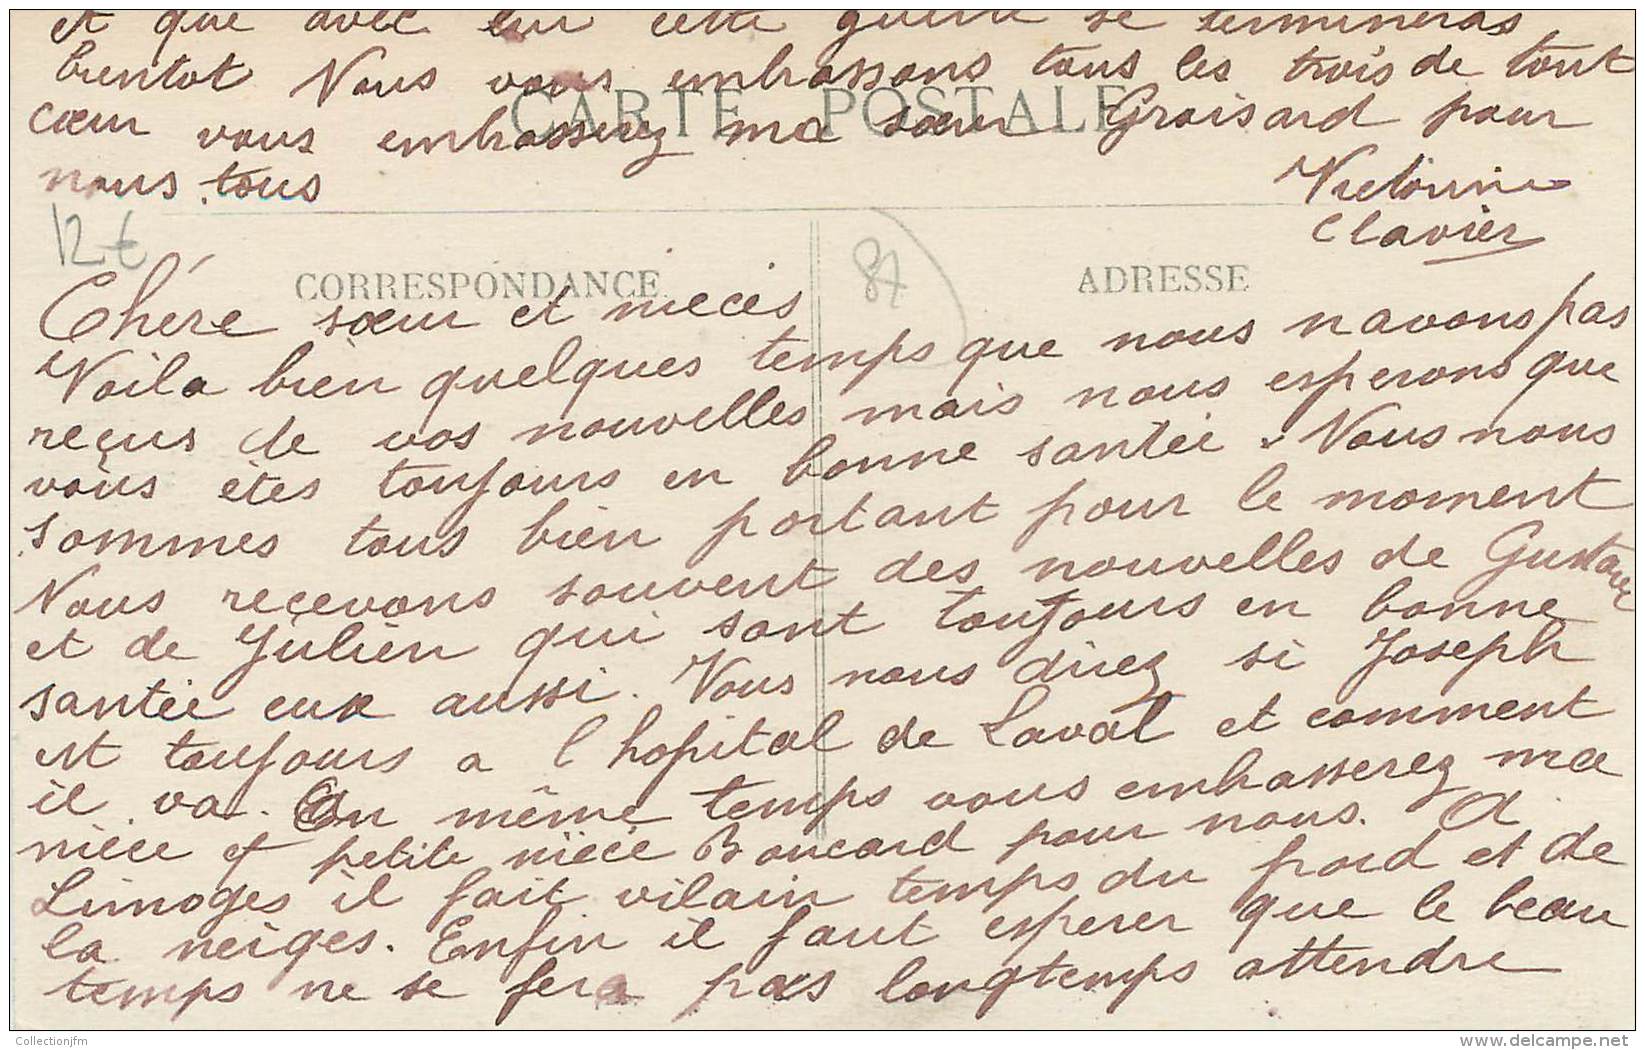 et que avec lui cette guerre se termineras
bientot Nous vous embrassons tous les trois de tout
CARTE POSTALE
cœur vous embasserez ma sœur Groisard pour
nous tous
Victorine
Clavier
12 €
87
CORRESPONDANCE
ADRESSE
Chére sœur et niecès
Voila bien quelques temps que nous navons pas
reçus de vos nouvelles mais nous esperons que
vous étes toujours en bonne santée. Nous nous
sommes tous bien portant pour le moment
Nous recevons souvent des nouvelles de Gustave
et de Julien qui sont toujours en bonne
santée eux aussi. Vous nous direz si Joseph
est toujours a l hopital de Laval et comment
il va. En même temps vous embasserez ma
nièce et petite nièce Boucard pour nous. A
Limoges il fait vilain temps du froid et de
la neiges. Enfin il faut esperer que le beau
temps ne se fera pas longtemps attendre
Collectionjfm
www.delcampe.net